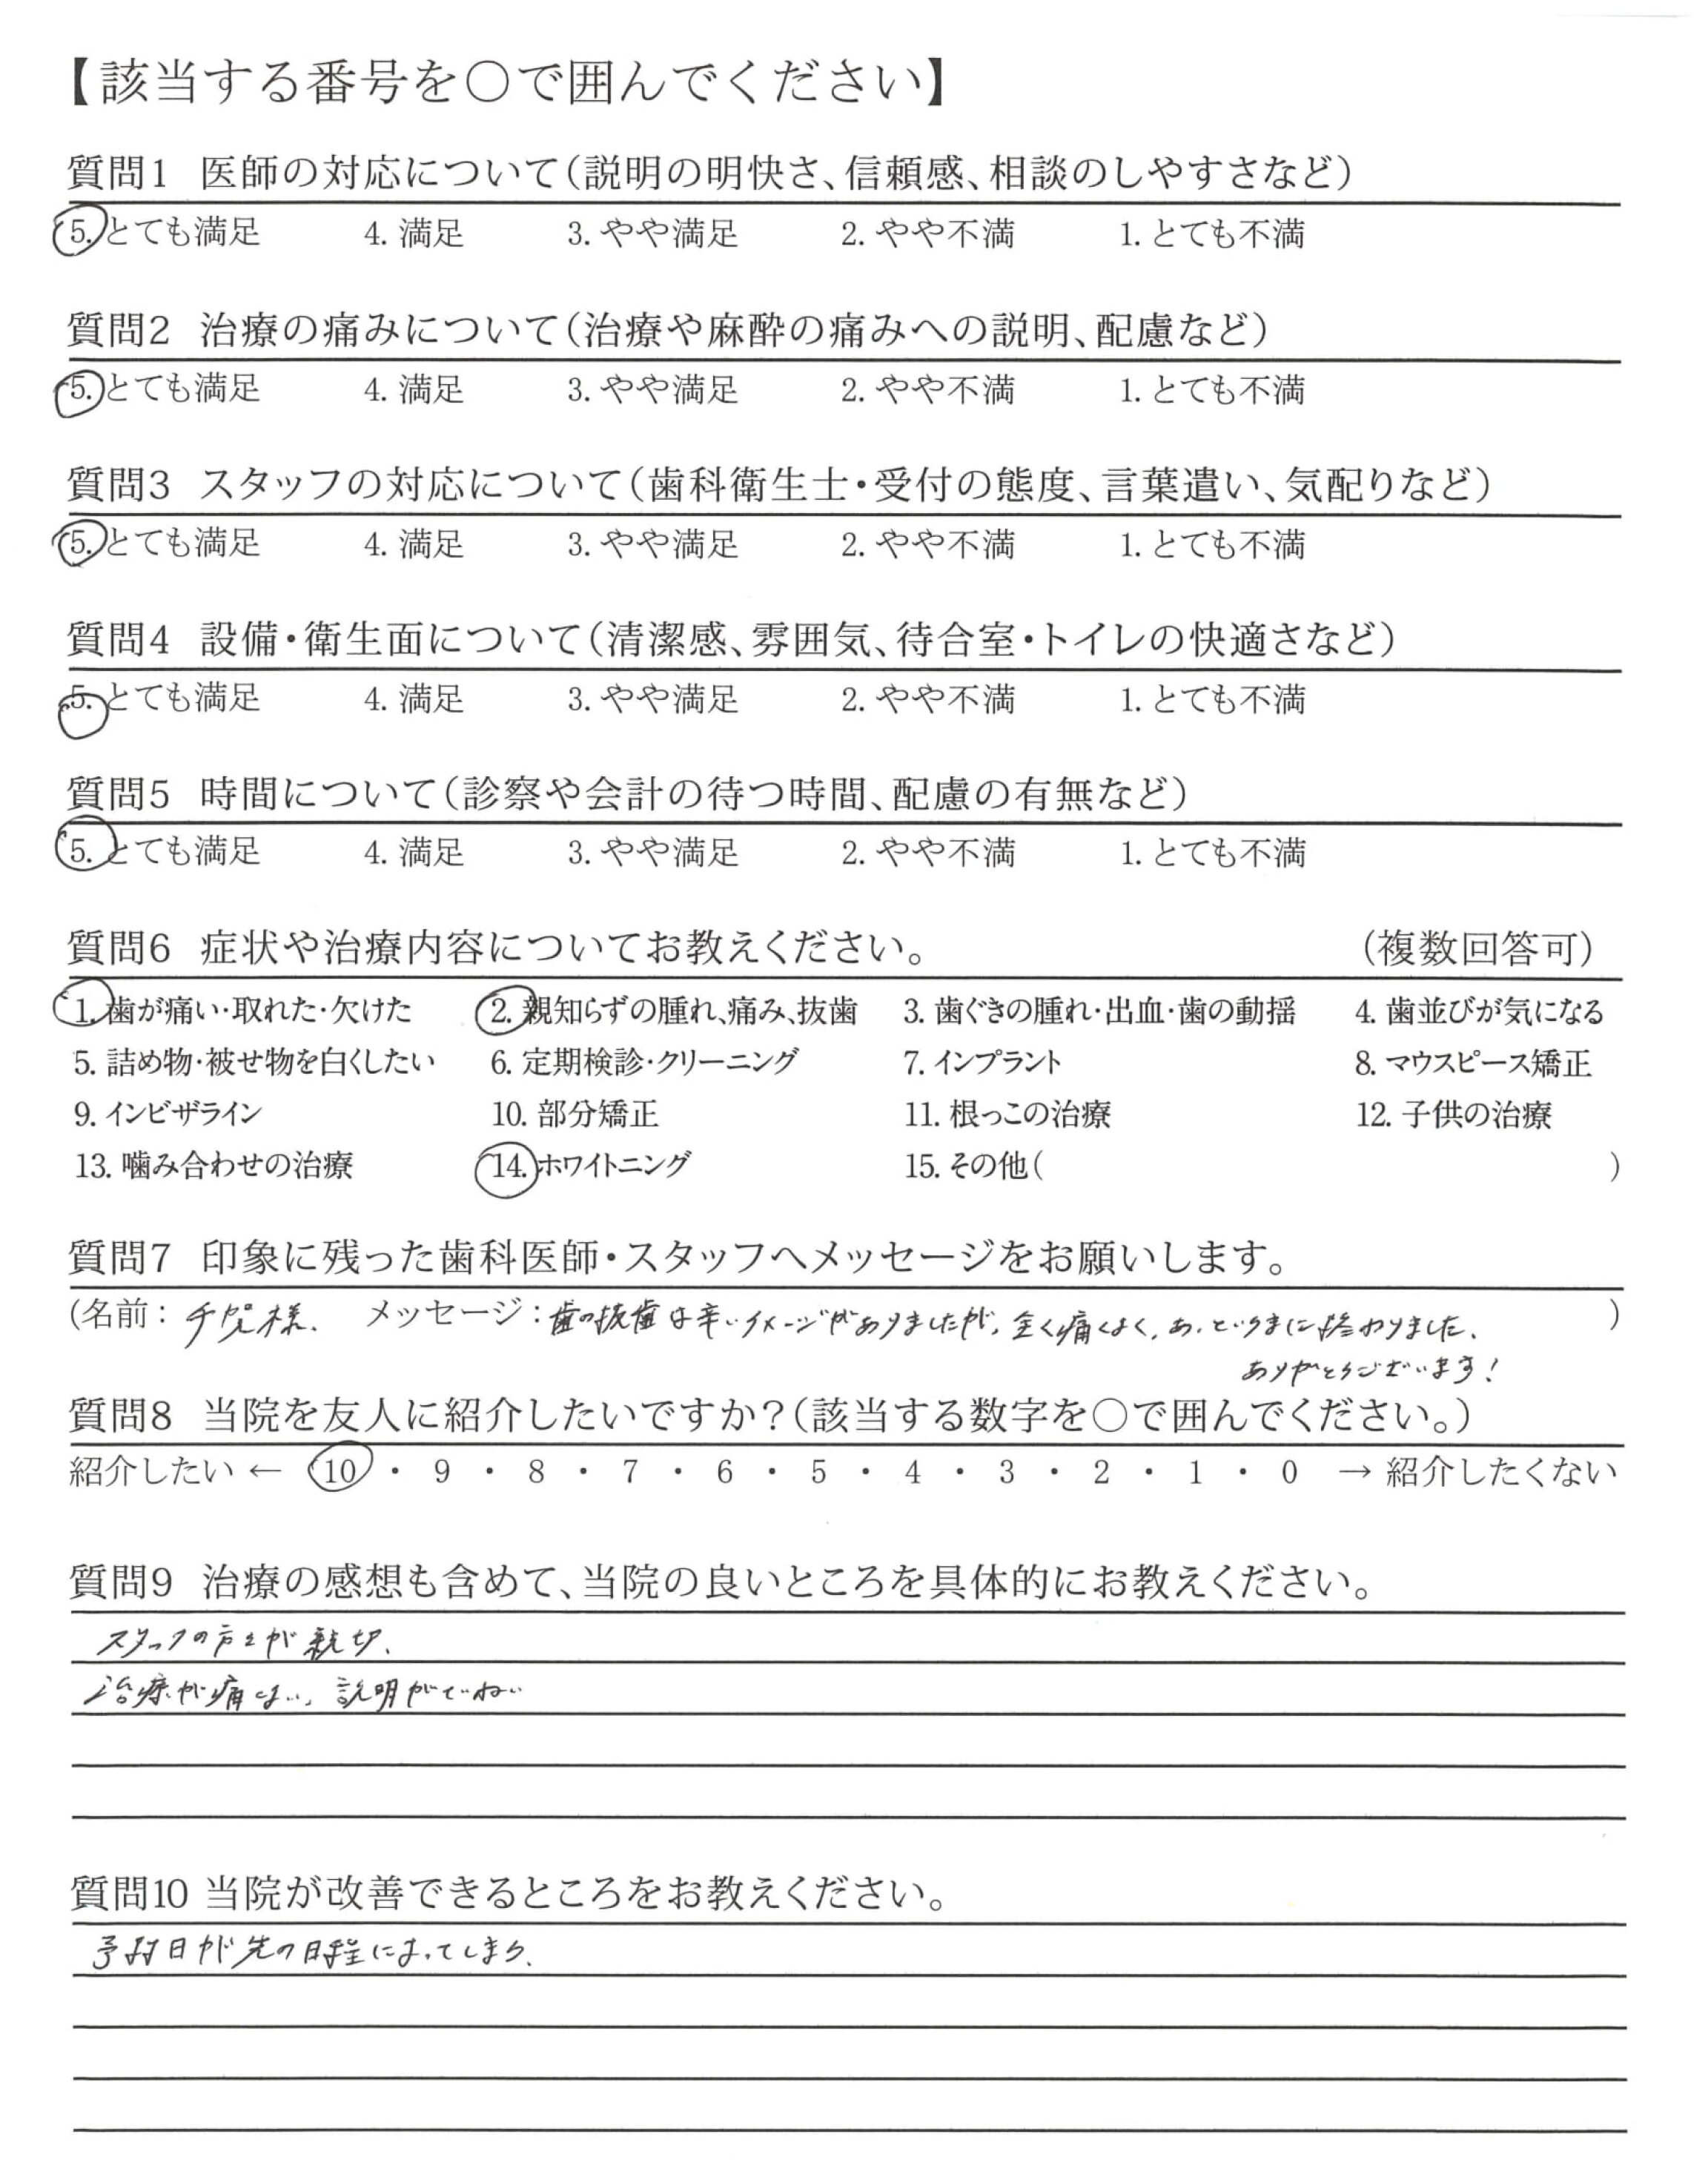 【該当する番号を○で囲んでください】
質問1 医師の対応について(説明の明快さ、信頼感、相談のしやすさなど)
5. とても満足 4. 満足 3. やや満足 2. やや不満 1. とても不満
質問2 治療の痛みについて(治療や麻酔の痛みへの説明、配慮など)
5. とても満足 4. 満足 3. やや満足 2. やや不満 1. とても不満
質問3 スタッフの対応について(歯科衛生士・受付の態度、言葉遣い、気配りなど)
5. とても満足 4. 満足 3. やや満足 2. やや不満 1. とても不満
質問4 設備・衛生面について(清潔感、雰囲気、待合室・トイレの快適さなど)
5. とても満足 4. 満足 3. やや満足 2. やや不満 1. とても不満
質問5 時間について(診察や会計の待つ時間、配慮の有無など)
5. とても満足 4. 満足 3. やや満足 2. やや不満 1. とても不満
質問6 症状や治療内容についてお教えください。 (複数回答可)
1. 歯が痛い・取れた・欠けた 2. 親知らずの腫れ、痛み、抜歯 3. 歯ぐきの腫れ・出血・歯の動揺 4. 歯並びが気になる
5. 詰め物・被せ物を白くしたい 6. 定期検診・クリーニング 7. インプラント 8. マウスピース矯正
9. インビザライン 10. 部分矯正 11. 根っこの治療 12. 子供の治療
13. 噛み合わせの治療 14. ホワイトニング 15. その他( )
質問7 印象に残った歯科医師・スタッフへメッセージをお願いします。
(名前: 千賀様. メッセージ: 歯の抜歯は辛いイメージがありましたが、全く痛くなく、あっというまに終わりました。 )
ありがとうございます!
質問8 当院を友人に紹介したいですか?(該当する数字を○で囲んでください。)
紹介したい ← 10 ・ 9 ・ 8 ・ 7 ・ 6 ・ 5 ・ 4 ・ 3 ・ 2 ・ 1 ・ 0 → 紹介したくない
質問9 治療の感想も含めて、当院の良いところを具体的にお教えください。
スタッフの方々が親切、
治療が痛くない、説明がていねい
質問10 当院が改善できるところをお教えください。
予約日が先の日程になってしまう、